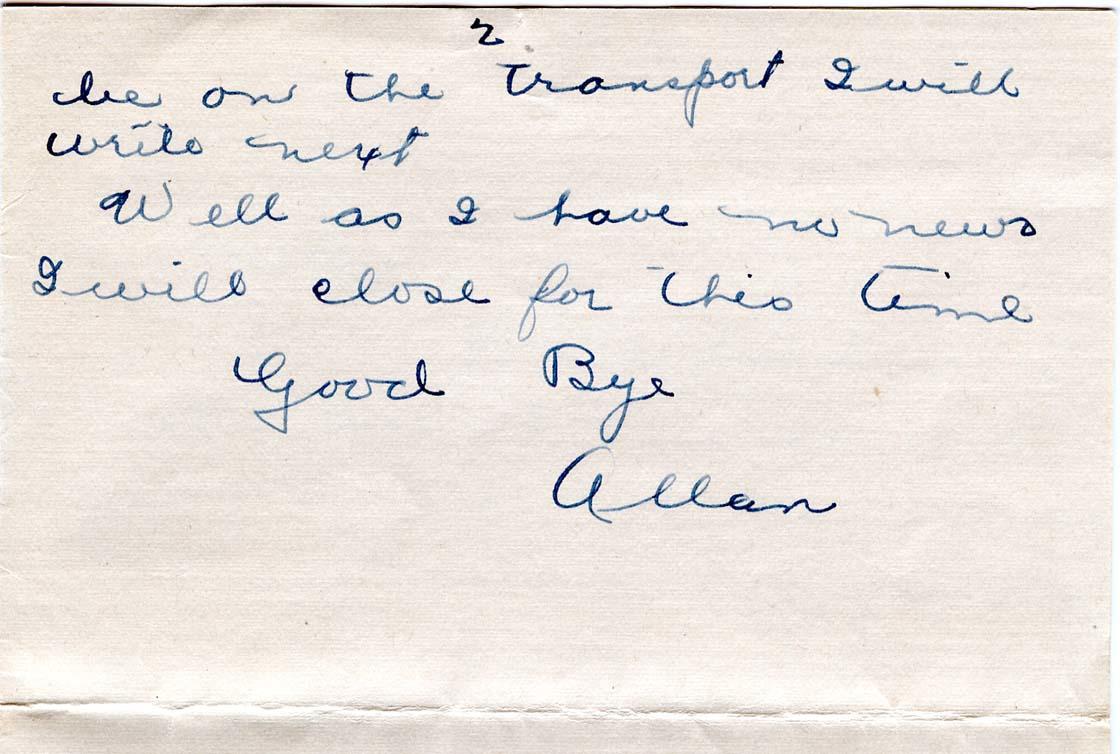 2
be on the transport I will
write next
Well as I have no news
I will close for this time
Good Bye
Allan